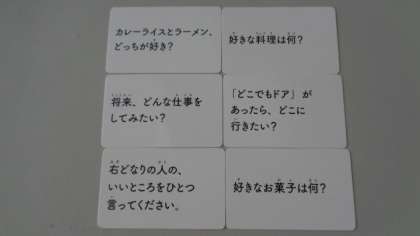 カレーライスとラーメン、
どっちが好き?
好きな料理は何?
将来、どんな仕事を
してみたい?
「どこでもドア」が
あったら、どこに
行きたい?
右どなりの人の、
いいところをひとつ
言ってください。
好きなお菓子は何?